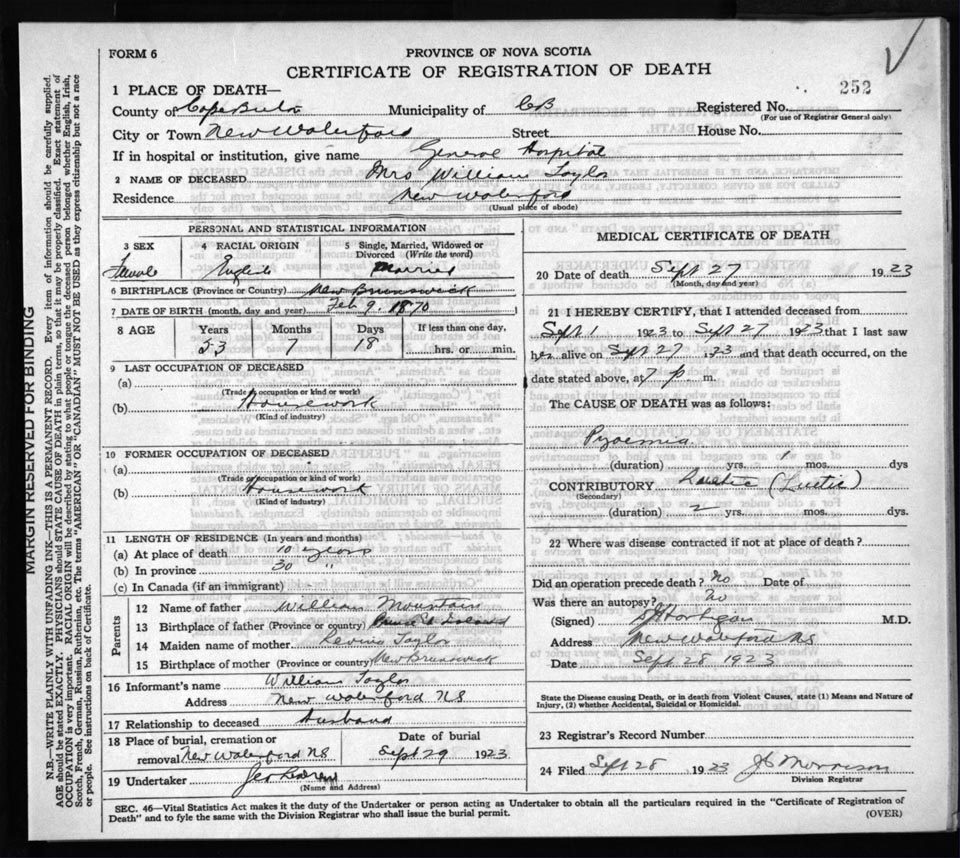 FORM 6
PROVINCE OF NOVA SCOTIA
CERTIFICATE OF REGISTRATION OF DEATH
252
1 PLACE OF DEATH—
County of Cape Breton Municipality of CB Registered No.
(For use of Registrar General only)
City or Town New Waterford Street House No.
If in hospital or institution, give name General Hospital
2 NAME OF DECEASED Mrs William Taylor
Residence New Waterford
(Usual place of abode)
PERSONAL AND STATISTICAL INFORMATION
3 SEX 4 RACIAL ORIGIN 5 Single, Married, Widowed or
Divorced (Write the word)
Female English Married
6 BIRTHPLACE (Province or Country) New Brunswick
7 DATE OF BIRTH (month, day and year) Feb 9, 1870
8 AGE Years Months Days If less than one day,
53 7 18 hrs. or min.
9 LAST OCCUPATION OF DECEASED
(a)
(Trade occupation or kind or work)
(b) Housework
(Kind of industry)
10 FORMER OCCUPATION OF DECEASED
(a)
(Trade occupation or kind or work)
(b) Housework
(Kind of industry)
11 LENGTH OF RESIDENCE (In years and months)
(a) At place of death 10 years
(b) In province 30 "
(c) In Canada (if an immigrant)
Parents
12 Name of father William Mountain
13 Birthplace of father (Province or country)
14 Maiden name of mother Taylor
15 Birthplace of mother (Province or country) New Brunswick
16 Informant's name William Taylor
Address New Waterford NS
17 Relationship to deceased Husband
18 Place of burial, cremation or Date of burial
removal New Waterford NS Sept 29 1923
19 Undertaker Geo
(Name and Address)
MEDICAL CERTIFICATE OF DEATH
20 Date of death Sept 27 1923
(Month, day and year)
21 I HEREBY CERTIFY, that I attended deceased from
Sept 1 1923 to Sept 27 1923 that I last saw
her alive on Sept 27, 23 and that death occurred, on the
date stated above, at 7 p. m.
The CAUSE OF DEATH was as follows:
Pyaemia
(duration) yrs. 1 mos. dys
CONTRIBUTORY
(Secondary)
(duration) 2 yrs. mos. dys.
22 Where was disease contracted if not at place of death?
Did an operation precede death? No Date of
Was there an autopsy? No
(Signed) Hartigan M.D.
Address New Waterford NS
Date Sept 28 1923
State the Disease causing Death, or in death from Violent Causes, state (1) Means and Nature of
Injury, (2) whether Accidental, Suicidal or Homicidal.
23 Registrar's Record Number
24 Filed Sept 28 1923 Morrison
Division Registrar
SEC. 46—Vital Statistics Act makes it the duty of the Undertaker or person acting as Undertaker to obtain all the particulars required in the "Certificate of Registration of
Death" and to fyle the same with the Division Registrar who shall issue the burial permit.
(OVER)
MARGIN RESERVED FOR BINDING
N.B.—WRITE PLAINLY WITH UNFADING INK—THIS IS A PERMANENT RECORD. Every item of information should be carefully supplied.
AGE should be stated EXACTLY. PHYSICIANS should STATE CAUSE OF DEATH in plain terms, so that it may be properly classified. Exact statement of
OCCUPATION is very important. RACIAL ORIGIN will be described by stating to what people or tongue the deceased person belonged whether English, Irish,
Scotch, French, German, Russian, Ruthenian, etc. The terms "AMERICAN" OR "CANADIAN" MUST NOT BE USED as they express citizenship but not a race
or people. See instructions on back of Certificate.